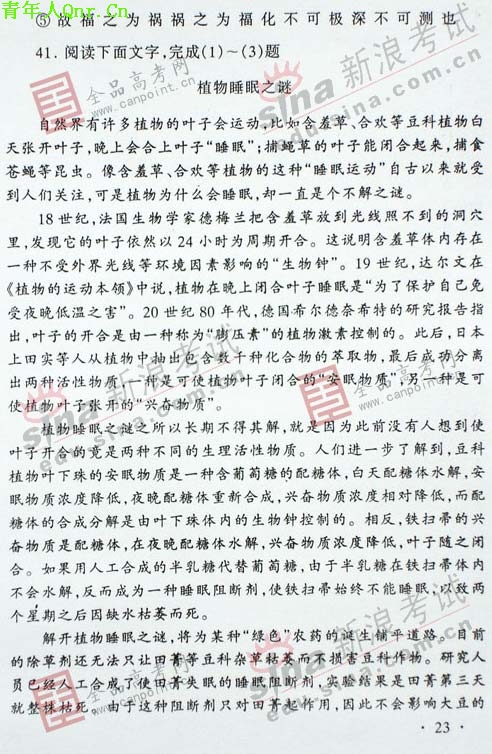 青年人Qnr.Cn
⑤故福之为祸祸之为福化不可极深不可测也
41. 阅读下面文字,完成(1)～(3)题
植物睡眠之谜
自然界有许多植物的叶子会运动,比如含羞草、合欢等豆科植物白
天张开叶子,晚上会合上叶子“睡眠”;捕蝇草的叶子能闭合起来,捕食
苍蝇等昆虫。像含羞草、合欢等植物的这种“睡眠运动”自古以来就受
到人们关注,可是植物为什么会睡眠,却一直是个不解之谜。
18 世纪,法国生物学家德梅兰把含羞草放到光线照不到的洞穴
里,发现它的叶子依然以 24 小时为周期开合。这说明含羞草体内存在
一种不受外界光线等环境因素影响的“生物钟”。19 世纪,达尔文在
《植物的运动本领》中说,植物在晚上闭合叶子睡眠是“为了保护自己免
受夜晚低温之害”。20 世纪 80 年代,德国希尔德奈希特的研究报告指
出,叶子的开合是由一种称为“膨压素”的植物激素控制的。此后,日本
上田实等人从植物中抽出包含数千种化合物的萃取物,最后成功分离
出两种活性物质,一种是可使植物叶子闭合的“安眠物质”,另一种是可
使植物叶子张开的“兴奋物质”。
植物睡眠之谜之所以长期不得其解,就是因为此前没有人想到使
叶子开合的竟是两种不同的生理活性物质。人们进一步了解到,豆科
植物叶下珠的安眠物质是一种含葡萄糖的配糖体,白天配糖体水解,安
眠物质浓度降低,夜晚配糖体重新合成,兴奋物质浓度相对降低,而配
糖体的合成分解是由叶下珠体内的生物钟控制的。相反,铁扫帚的兴
奋物质是配糖体,在夜晚配糖体水解,兴奋物质浓度降低,叶子随之闭
合。如果用人工合成的半乳糖代替葡萄糖,由于半乳糖在铁扫帚体内
不会水解,反而成为一种睡眠阻断剂,使铁扫帚始终不能睡眠,以致两
个星期之后因缺水枯萎而死。
解开植物睡眠之谜,将为某种“绿色”农药的诞生铺平道路。目前
的除草剂还无法只让田菁等豆科杂草枯萎而不损害豆科作物。研究人
员已经人工合成了使田菁失眠的睡眠阻断剂,实验结果是田菁第三天
就整株枯死。由于这种阻断剂只对田菁起作用,因此不会影响大豆的
· 23 ·
全品高考网
www.canpoint.cn
sina新浪考试
全品高考网
www.canpoint.cn
sina新浪考试